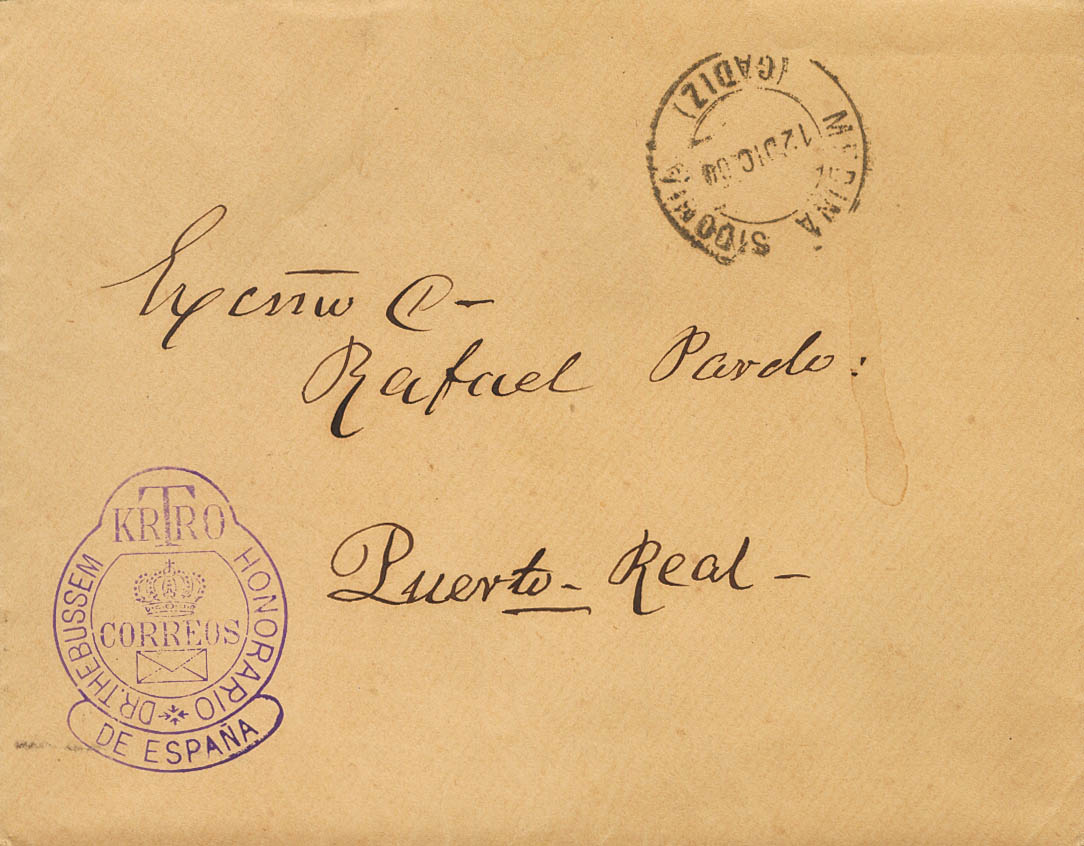 MEDINA SIDONIA
(CADIZ)
12 DIC.
Excmo
Rafael Pardo:
Puerto- Real -
KRTRO
DR. THEBUSSEM HONORARIO
CORREOS
DE ESPAÑA